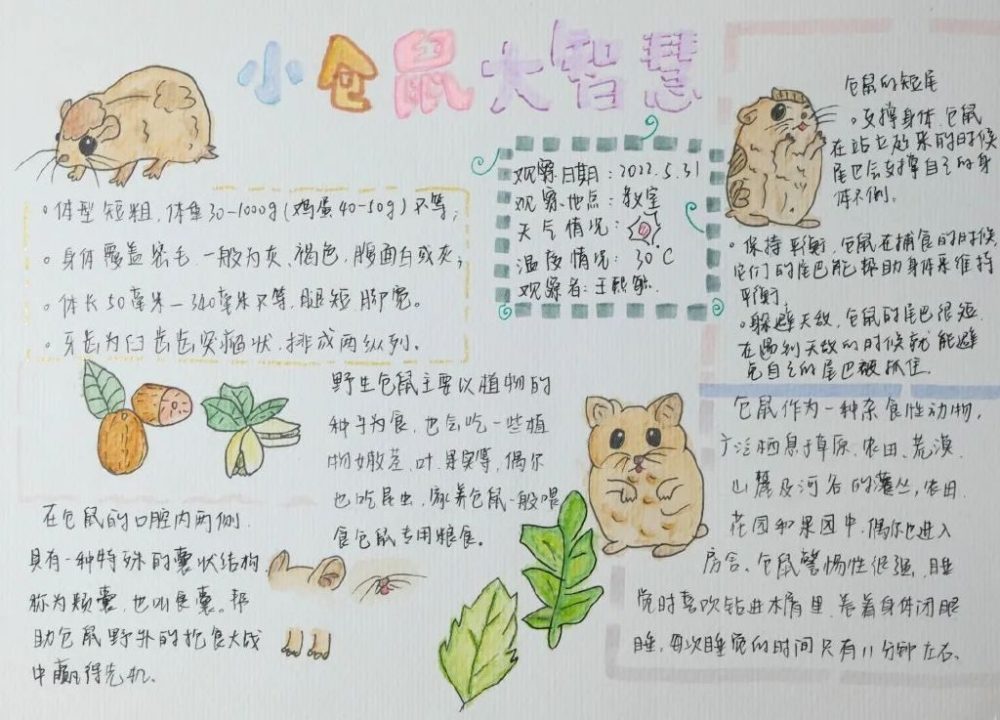 小仓鼠大智慧
·体型短粗，体重30-1000g（鸡蛋40-50g）不等；
·身体覆盖密毛，一般为灰、褐色，腹面白或灰；
·体长50毫米-340毫米不等，腿短脚宽。
·牙齿为臼齿齿突瘤状，排成两纵列。
观察日期：2022.5.31
观察地点：教室
天气情况：
温度情况：30℃
观察者：王熙
仓鼠的短尾
·支撑身体，仓鼠
在站立起来的时候
尾巴会支撑自己的身
体不倒。
·保持平衡，仓鼠在捕食的时候
它们的尾巴能帮助身体来维持
平衡，
·躲避天敌，仓鼠的尾巴很短，
在遇到天敌的时候就能避
免自己的尾巴被抓住。
野生仓鼠主要以植物的
种子为食，也会吃一些植
物嫩茎、叶、果实等，偶尔
也吃昆虫，家养仓鼠一般喂
食仓鼠专用粮食。
在仓鼠的口腔内两侧，
具有一种特殊的囊状结构，
称为颊囊，也叫食囊。帮
助仓鼠野外的抢食大战
中赢得先机。
仓鼠作为一种杂食性动物，
广泛栖息于草原、农田、荒漠、
山麓及河谷的灌丛，农田、
花园和果园中，偶尔也进入
房舍。仓鼠警惕性很强，睡
觉时喜欢钻进木屑里，卷着身体闭眼
睡，每次睡觉的时间只有11分钟左右。